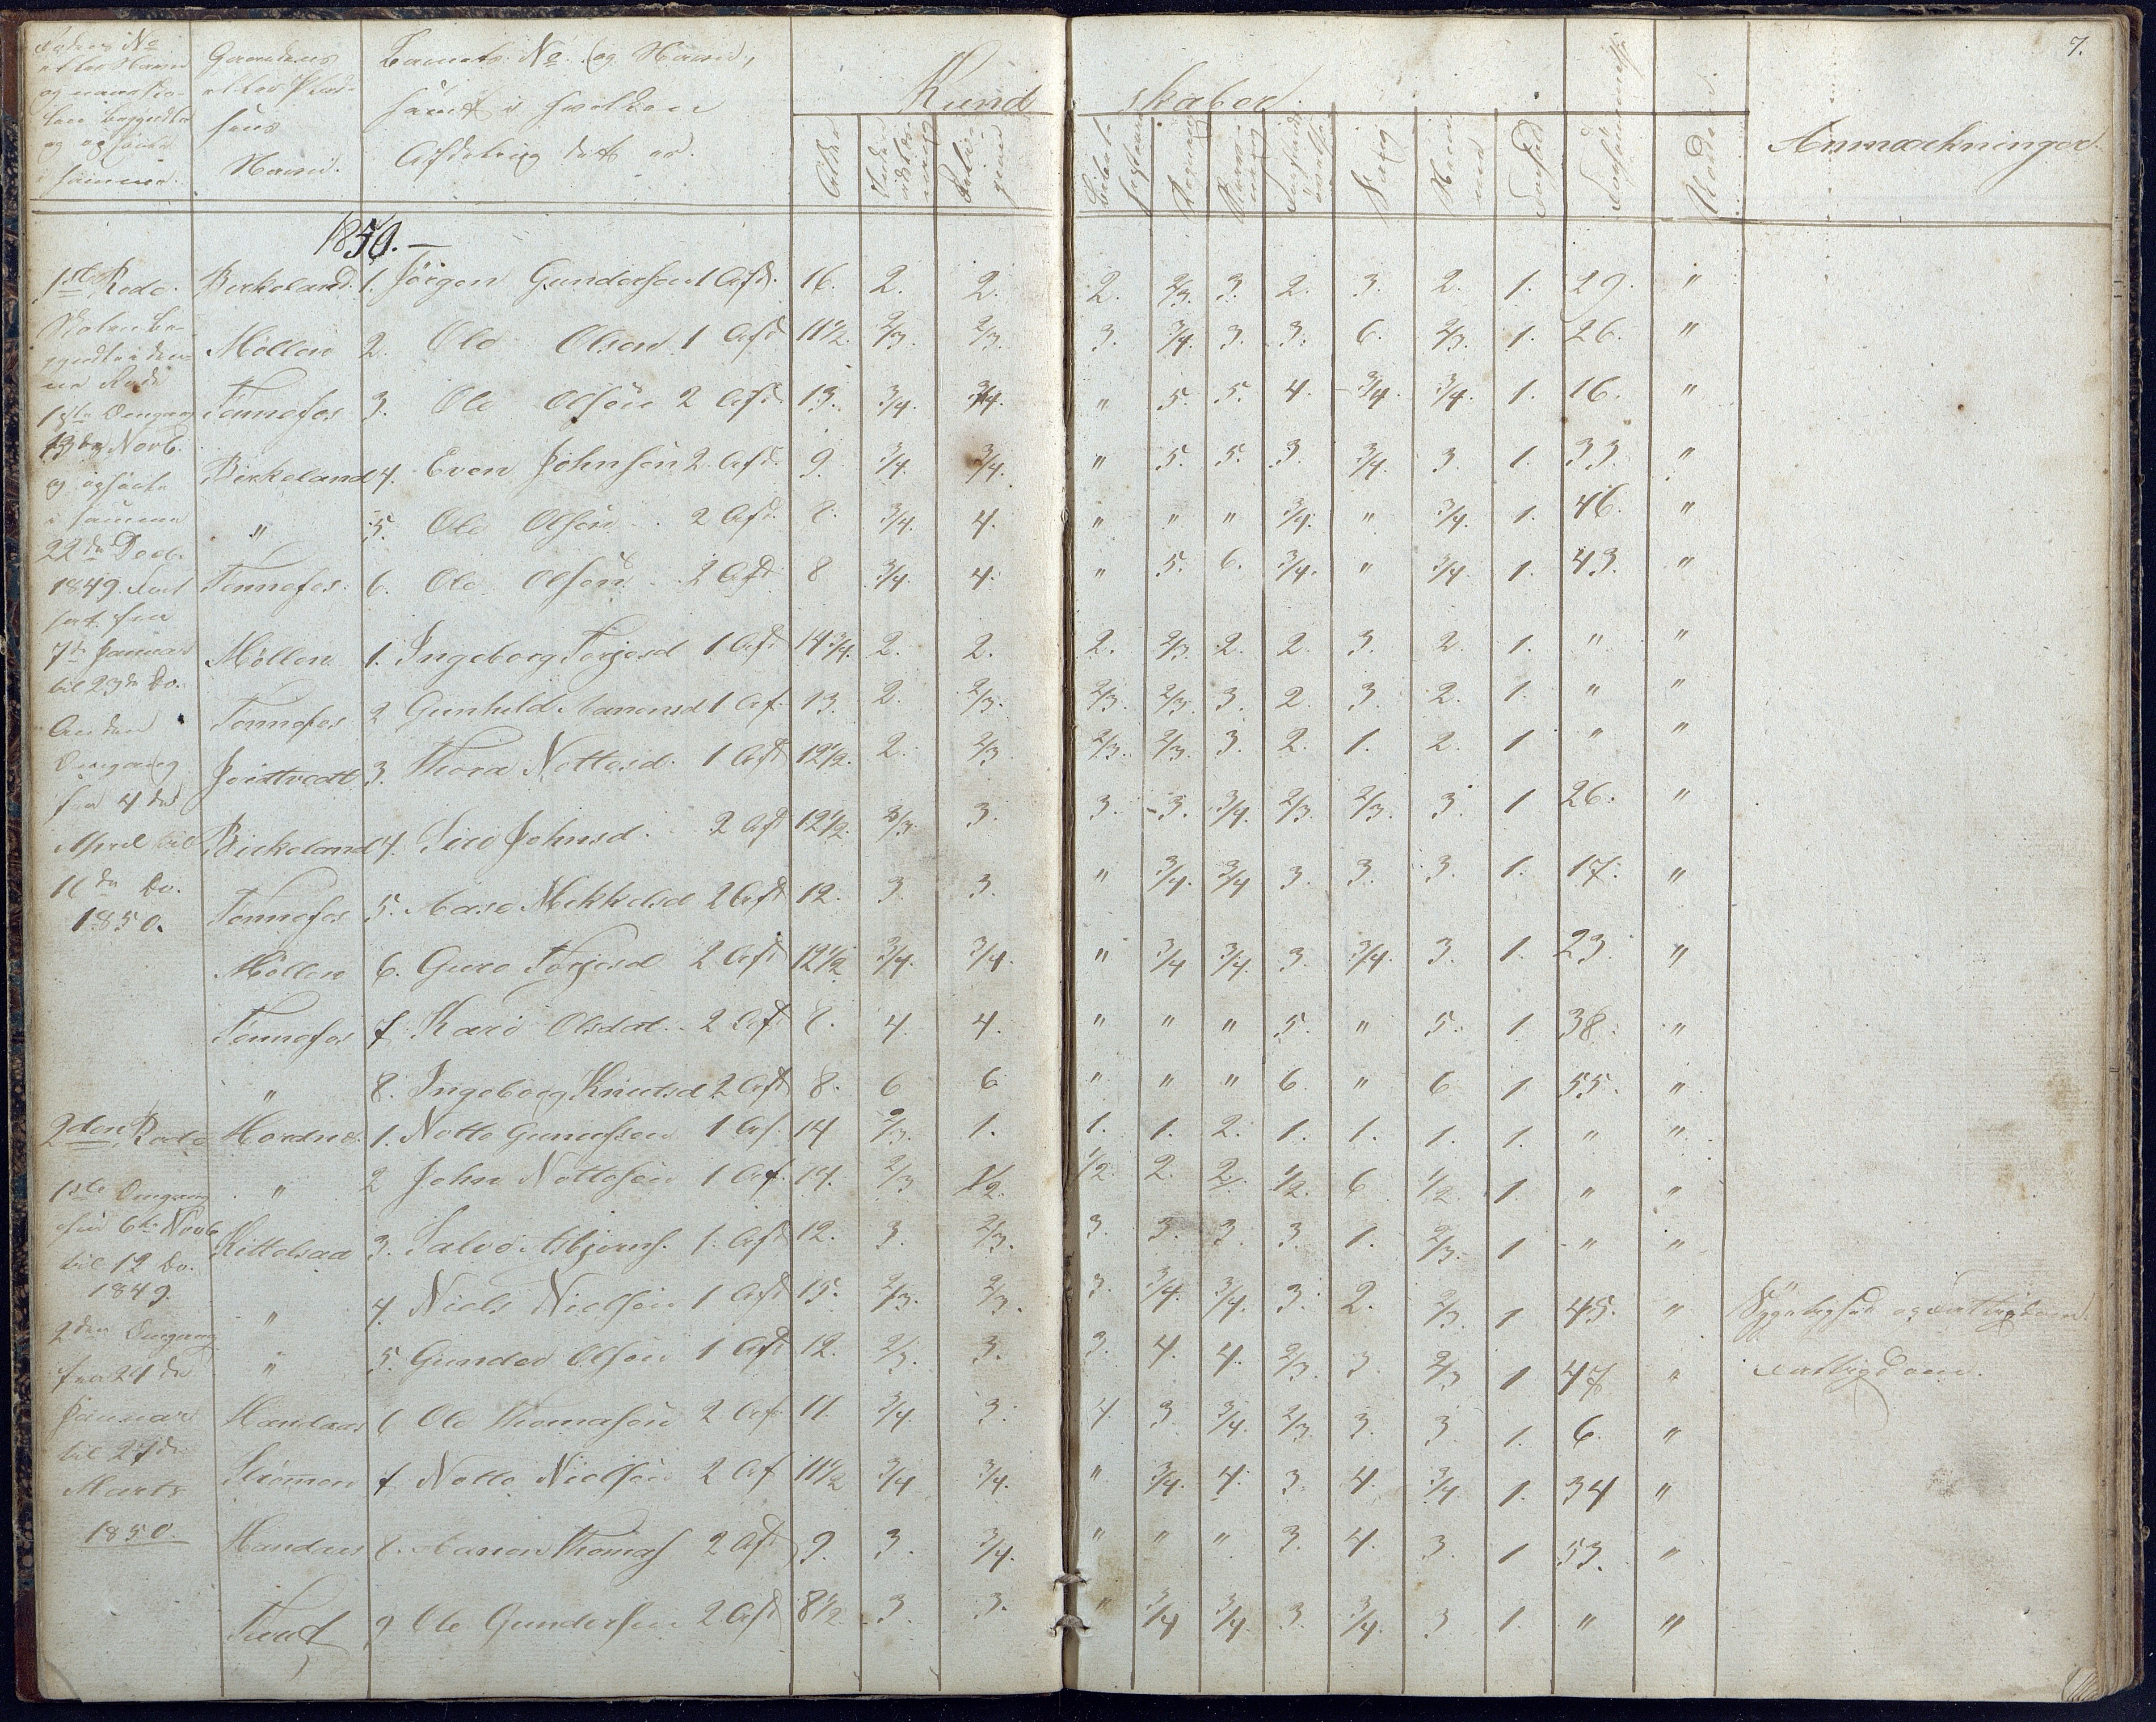 7.
Rodens No
eller Navn
og naar Sko-
len begyndte
og ophørte
i samme.
Gaardens
eller Plad-
sens
Navn.
Barnets No og Navn,
samt i hvilken
Afdeling det er.
Kundskaber.
Alder
Religion
Regning
Skrivning
Sang
Forhold
Forsømmelse
Anmærkninger
1850.
1ste Rode.
Skolen be-
gyndte i den-
ne Rode
1ste Omgang
13de Novb.
og ophørte
i samme
22de Decb.
1849. Fort-
sat fra
7de Januar
til 23de Do.
Anden
Omgang
fra 4de
April til
16de Do.
1850.
Birkeland. 1. Jørgen Gundersen 1 Afd. 16. 2. 2. 2. 2/3. 3. 2. 3. 2. 1. 29. "
Møllen 2. Ole Olsen 1 Afd 11 1/2 2/3. 2/3. 3. 3/4. 3. 3. 6. 2/3. 1. 26. "
Tonnefos 3. Ole Olsen 2 Afd. 13. 3/4. 3/4. " 5. 5. 4. 3/4. 3/4. 1. 16. "
Birkeland 4. Even Johnsen 2 Afd. 9. 3/4. 3/4. " 5. 5. 3. 3/4. 3. 1. 33. "
" 5. Ole Olsen 2 Afd. 8. 3/4. 4. " " " 3/4. " 3/4. 1. 46. "
Tonnefos. 6. Ole Olsen 2 Afd 8 3/4. 4. " 5. 6. 3/4. " 3/4 1. 43. "
Møllen 1. Ingeborg Torjesd 1 Afd 14 3/4. 2. 2. 2. 2/3. 2. 2. 3. 2. 1. " "
Tonnefos 2 Gunhild Aanensd 1 Af. 13. 2. 2/3. 2/3. 2/3. 3. 2. 3. 2. 1. " "
3. Thora Nottosd. 1 Afd 12 1/2. 2. 2/3 2/3. 2/3. 3. 2. 1. 2. 1 " "
Birkeland 4. Siri Johnsd. 2 Afd 12 1/2. 2/3. 3. 3. 3. 3/4. 2/3. 2/3. 3. 1 26. "
Tonnefos 5. Aase Mikkelsd 2 Afd 12. 3. 3. " 3/4. 3/4 3. 3. 3. 1. 17. "
Møllen 6. Guro Torjesd 2 Afd 12 1/2 3/4. 3/4. " 3/4 3/4. 3. 3/4. 3. 1. 23. "
Tonnefos 7 Kari Olsdat. 2 Afd 8. 4. 4. " " " 5. " 5. 1. 38. "
" 8. Ingeborg Knutsd 2 Afd 8. 6 6 " " " 6. " 6 1 55. "
2den Rode
1ste Omgang
fra 6te Novb
til 12 Do.
1849.
2den Omgang
fra 24de
Januar
til 27de
Marts
1850.
Hordnes. 1. Notto Gunufsen 1 Af. 14 2/3. 1. 1. 1. 2. 1. 1. 1. 1. " "
" 2 John Nottosen 1 Af. 14. 2/3 1/2. 1/2. 2. 2. 1/2. 6 1/2. 1. " "
Kittelsaa 3. Salve Asbjørns. 1. Afd 12. 3. 2/3. 3. 3. 3. 3. 1. 2/3. 1 " "
" 4. Niels Nielsen 1 Afd 15. 2/3. 2/3. 3. 3/4. 3/4. 3. 2. 2/3. 1 45. " Sygelighed og Fattigdom
" 5. Gunder Olsen 1 Afd 12. 2/3. 3. 3. 4. 4. 2/3. 3. 2/3 1 47 " Fattigdom.
6 Ole Thomasen 2 Af. 11. 3/4. 3. 4. 3. 3/4. 2/3. 3. 3. 1. 6. "
Strømmen 7 Notto Nielsen 2 Af 11 1/2 3/4 3/4. " 3/4. 4. 3. 4. 3/4. 1. 34 "
8. Aanon Thomas 2 Afd 9. 3. 3/4. " " " 3. 4. 3. 1 53. "
9 Ole Gundersen 2 Afd 8 1/2 3. 3. " 3/4 3/4. 3 3/4. 3 1. " "